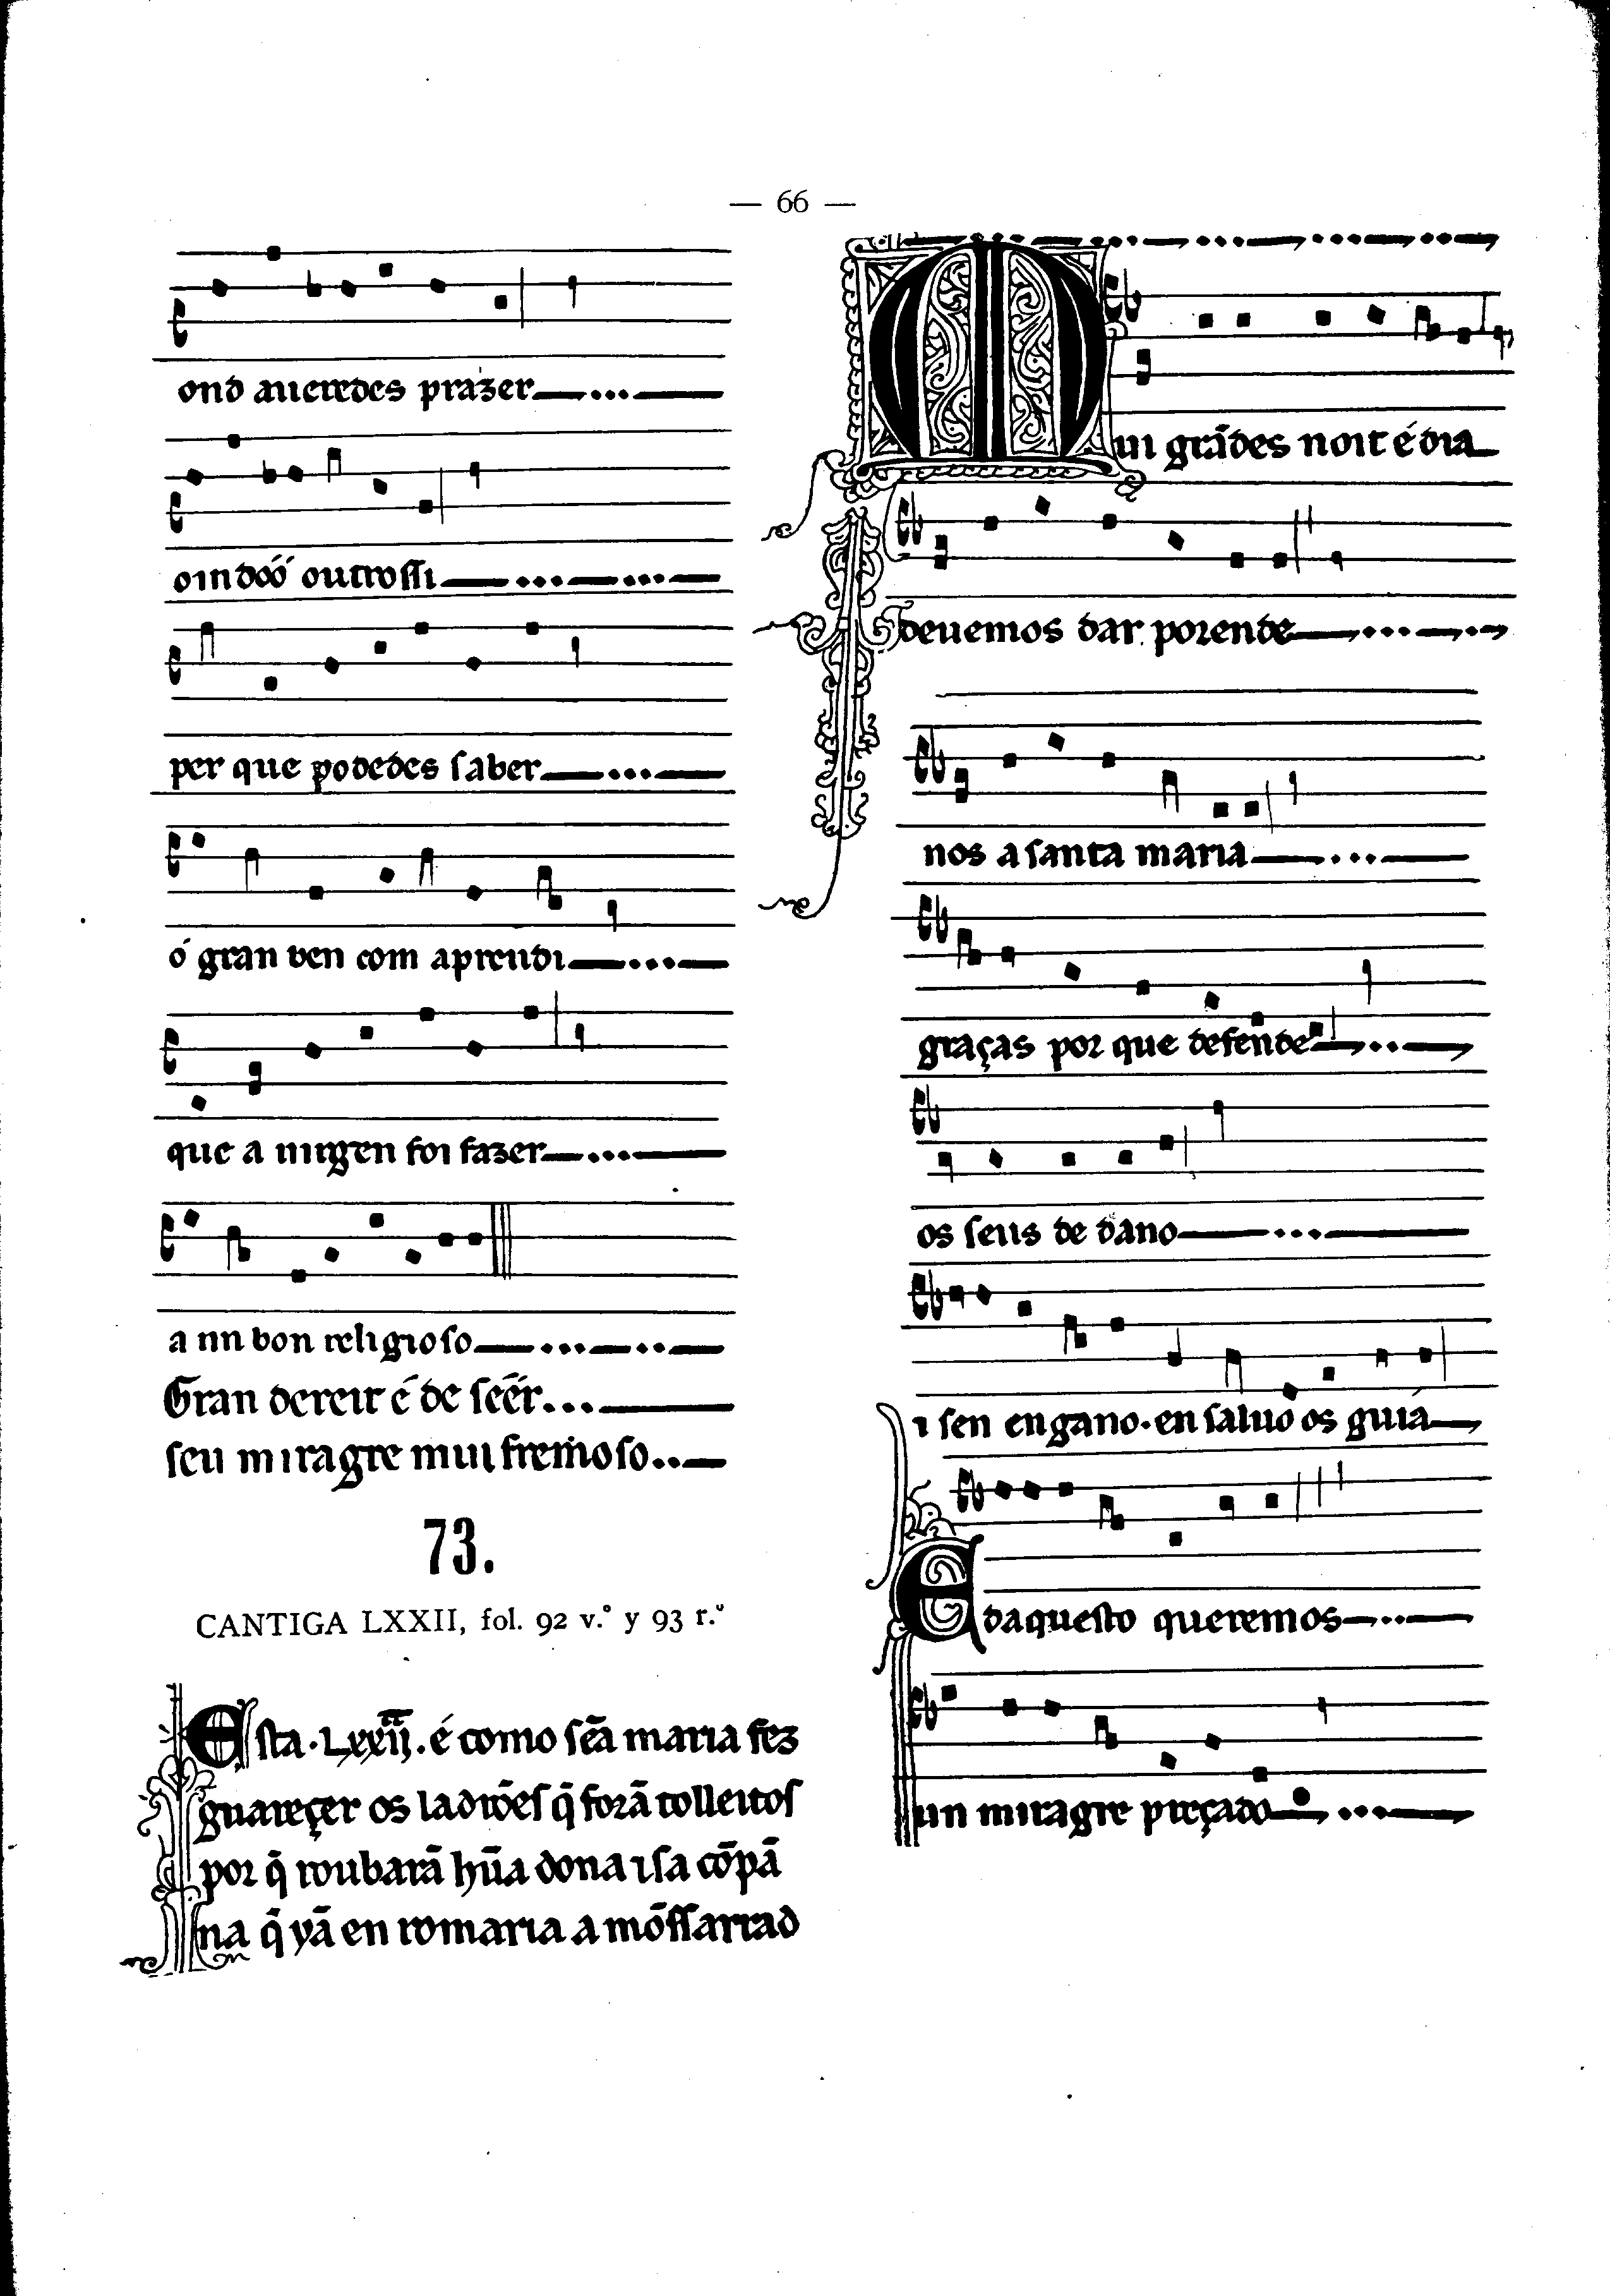 — 66 —
ond aueredes prazer
oindoó outrossi
per que podedes saber
ó gran ben com aprendi
que a uirgen foi fazer
a un bon religioso
Gran dereit é de seér
seu miragre mui fremoso
73.
CANTIGA LXXII, fol. 92 v.º y 93 r.º
Esta · Lxxij · é como sc̃a maria fez
guareçer os ladrões q̃ forã tolleitos
por q̃ roubarã hũa dona ⁊ sa cõpã
na q̃ yã en romaria a mõssarrad
Mui grãdes noit é dia
deuemos dar porende
nos a santa maria
graças por que defende
os seus de dano
⁊ sen engano · en saluo os guiá
E daquesto queremos
un miragre preçado